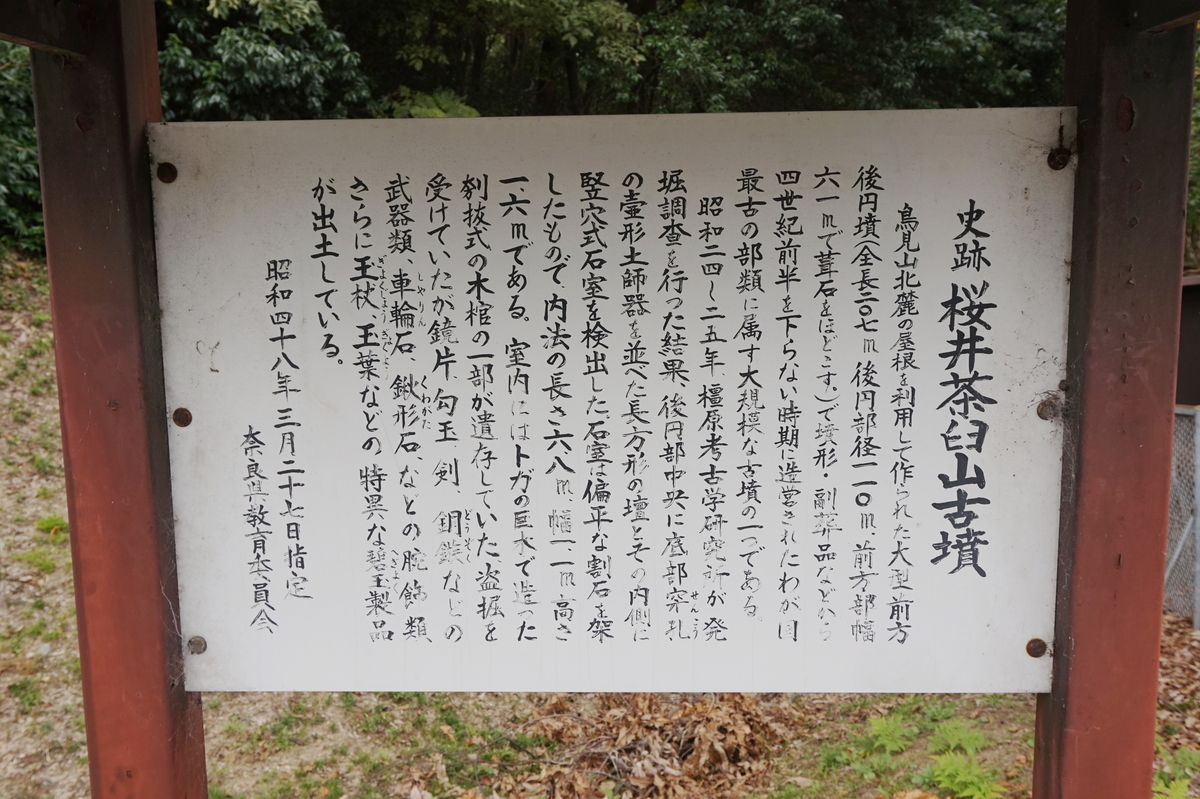 史跡 桜井茶臼山古墳
鳥見山北麓の尾根を利用して作られた大型前方
後円墳(全長二〇七m 後円部径一一〇m、前方部幅
六一mで葺石をほどこす。)で墳形・副葬品などから
四世紀前半を下らない時期に造営されたわが国
最古の部類に属す大規模な古墳の一つである。
昭和二四〜二五年 橿原考古学研究所が発
堀調査を行った結果、後円部中央に底部穿孔せんこう
の壷形土師器を並べた長方形の壇とその内側に
竪穴式石室を検出した。石室は偏平な割石を架
したもので、内法の長さ六八m、幅一、一m高さ
一、六mである。室内にはトガの巨木で造った
刳抜式の木棺の一部が遺存していた。盗掘を
受けていたが鏡片、勾玉、剣、銅鏃どうぞくなどの
武器類、車輪石しゃりん、鍬形石くわがた、などの腕飾類
さらに玉杖ぎょくじょう、玉葉ぎょくなどの特異な碧玉へきぎょく製品
が出土している。
昭和四十八年 三月二十七日指定
奈良県教育委員会